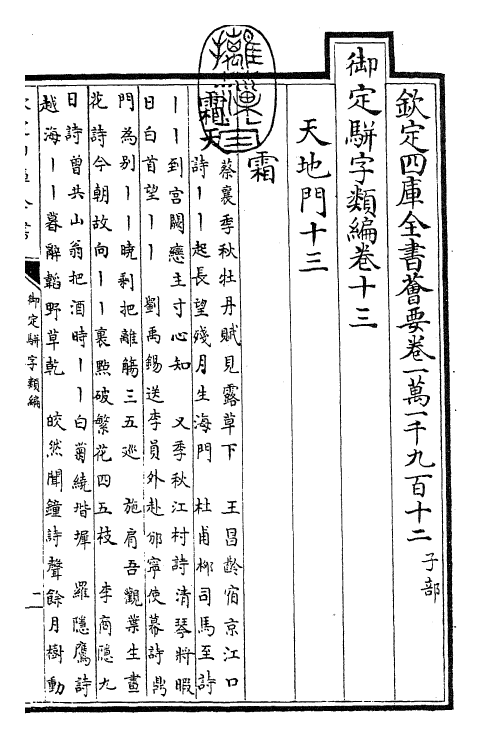 欽定四庫全書薈要卷一萬一千九百十二 子部
御定駢字類編卷十三
天地門十三
霜
霜天
蔡襄季秋牡丹賦見露草下 王昌齡宿京江口
詩丨丨起長望殘月生海門 杜甫柳司馬至詩
丨丨到宮闕應主寸心知 又季秋江村詩清琴將暇
日白首望丨丨 劉禹錫送李員外赴邠寧使幕詩鼎
門為别丨丨曉剩把離觴三五廵 施肩吾觀葉生畫
花詩今朝故向丨丨裏㸃破繁花四五枝 李商隱九
日詩曾共山翁把酒時丨丨白菊繞堦墀 羅隱鷹詩
越海丨丨暮辭韜野草乾 皎然聞鐘詩聲餘月樹動
御定駢字類編
二